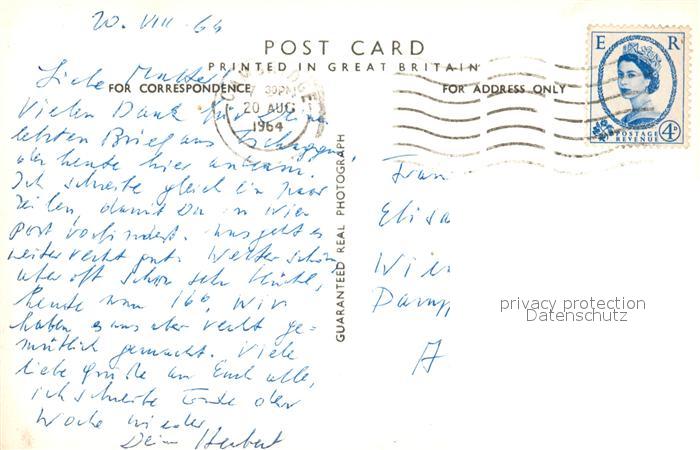 20. VIII. 64
POST CARD
PRINTED IN GREAT BRITAIN
FOR CORRESPONDENCE
FOR ADDRESS ONLY
E R
POSTAGE
REVENUE
4D
7 30PM
20 AUG
1964
GUARANTEED REAL PHOTOGRAPH
Liebe Mutter!
Vielen Dank für Deinen
letzten Brief aus
der heute hier ankam.
Ich schreibe gleich ein paar
Zeilen, damit Du in Wien
Post vorfindest. Uns geht es
weiter recht gut. Wetter schön,
aber oft schon sehr kühl,
heute nur 16°. Wir
haben es uns aber recht ge=
mütlich gemacht. Viele
liebe Grüße an Euch alle,
ich schreibe Ende der
Woche wieder
Dein Herbert
Frau
Elisa
Wien
A
privacy protection
Datenschutz